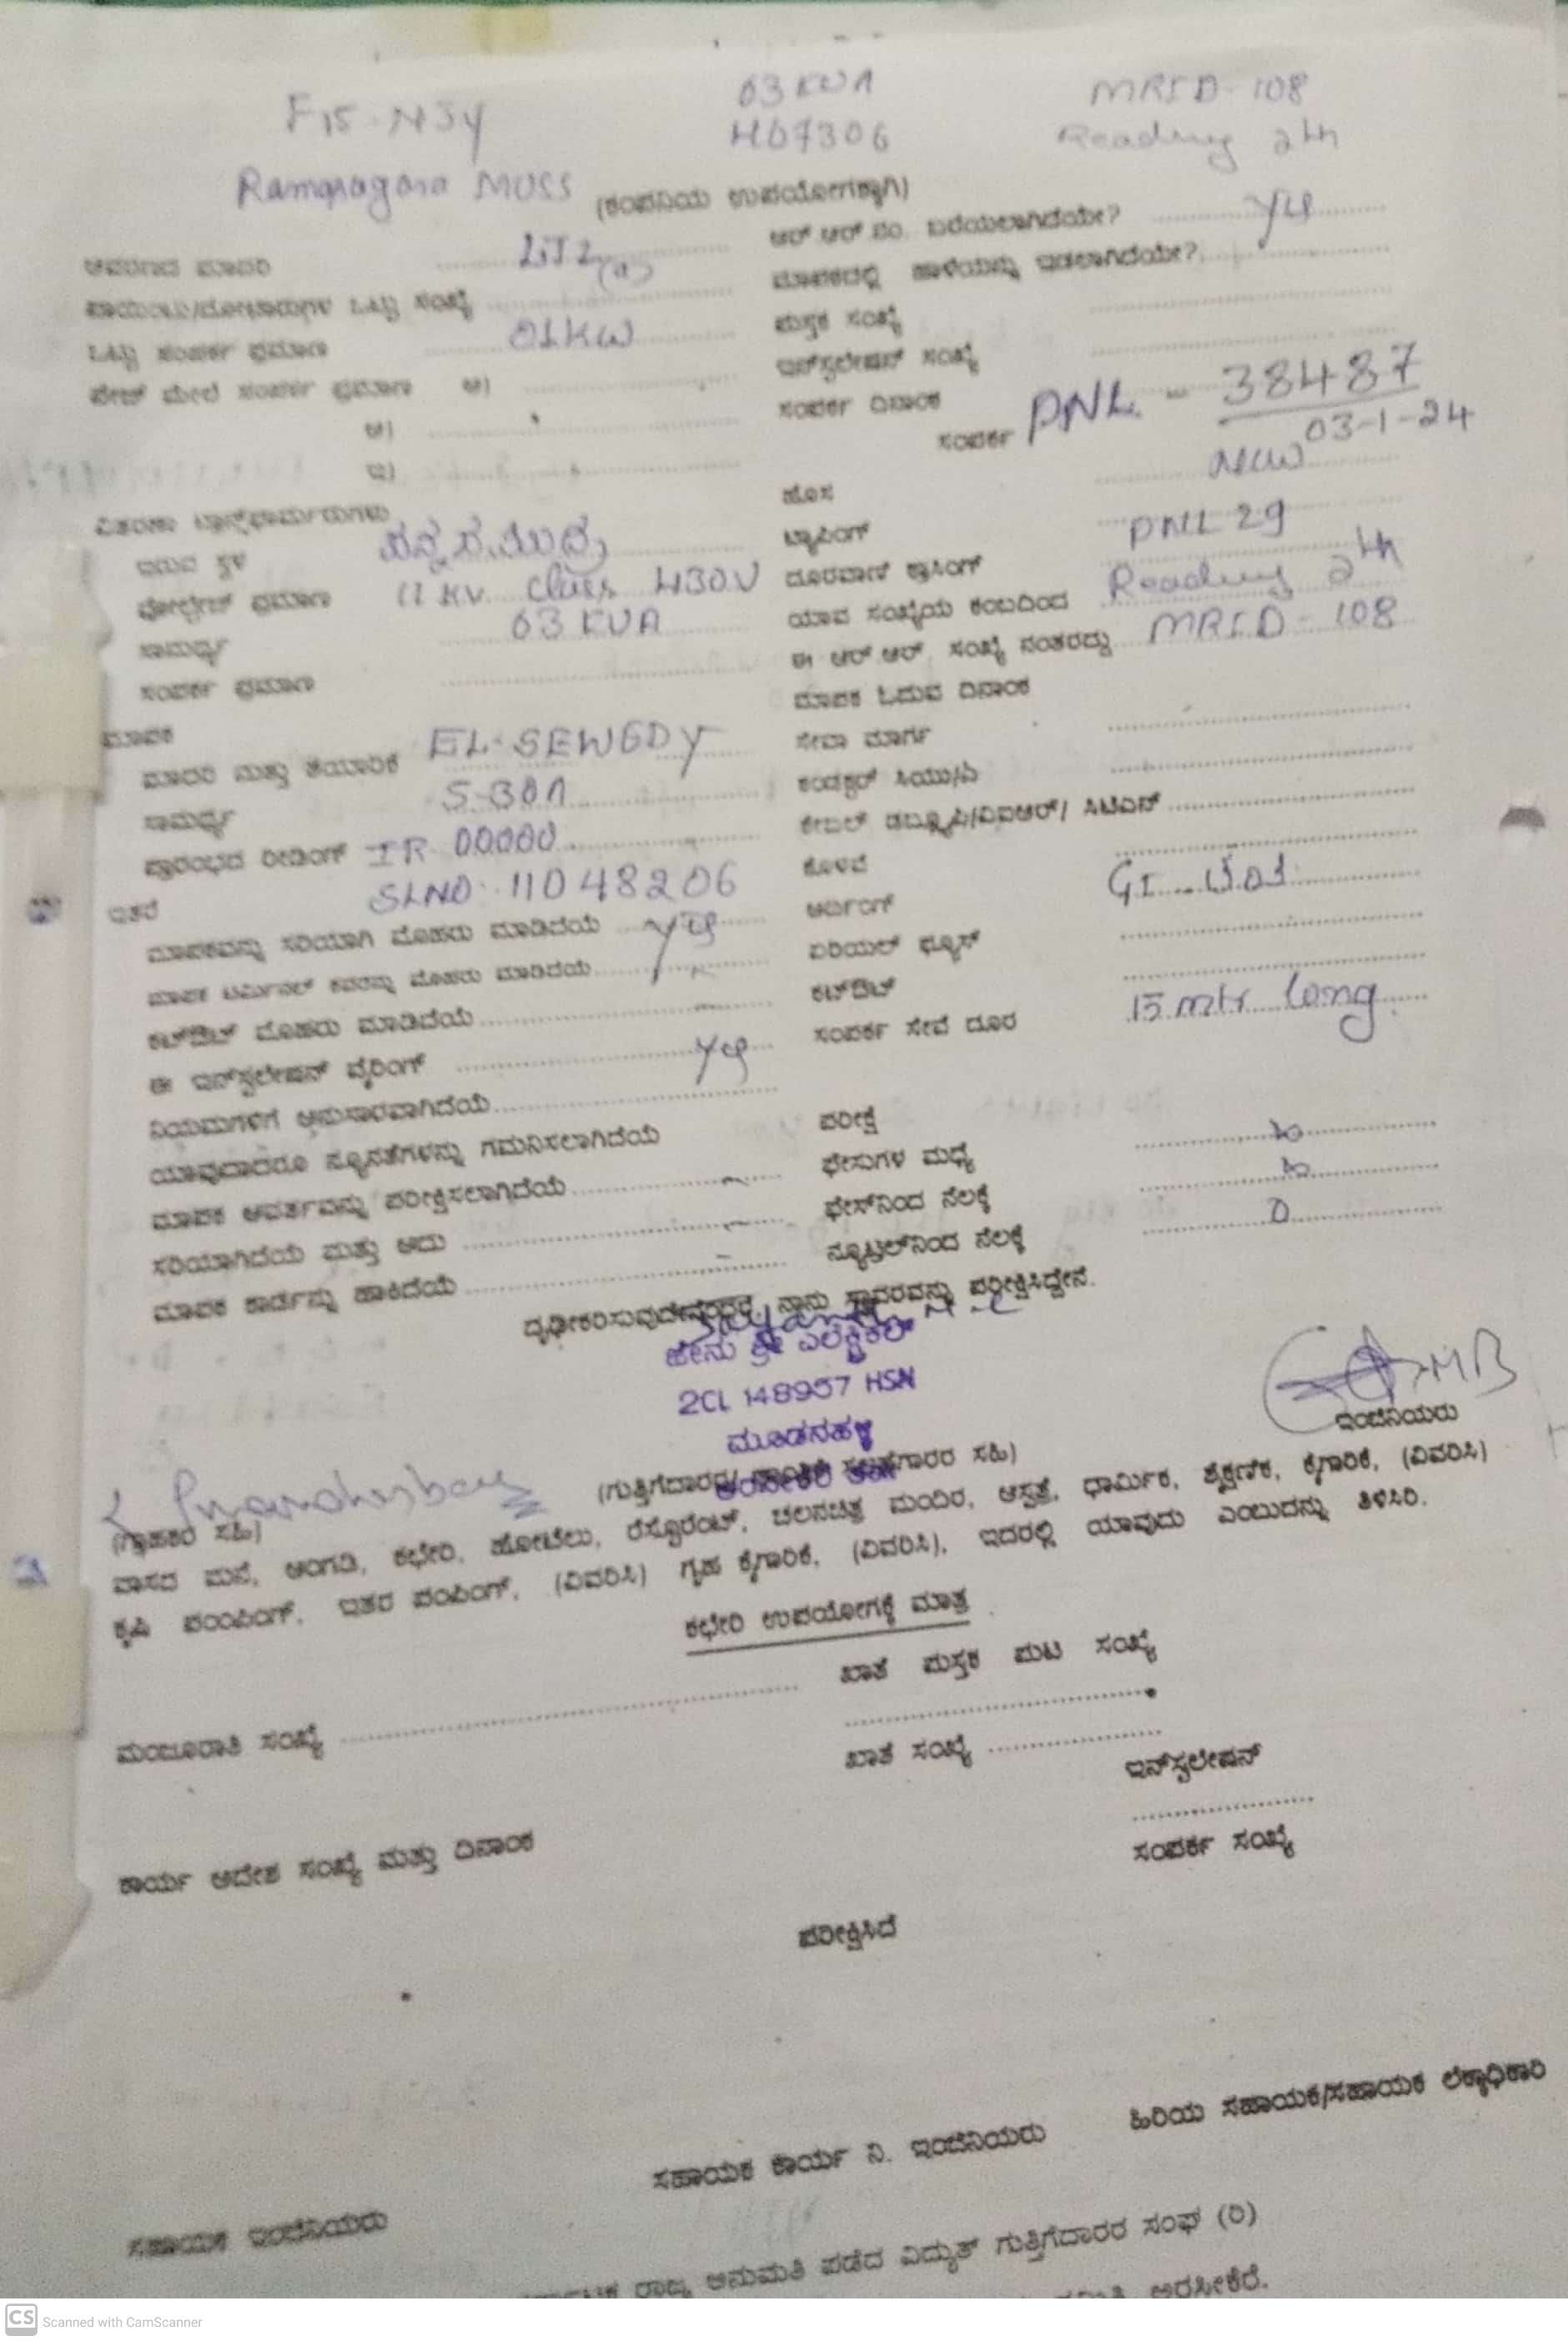 F15-NJY 63 KVA MRID-108
H07306 Reading 2th
MUSS (ಕಂಪನಿಯ ಉಪಯೋಗಕ್ಕಾಗಿ)
ಆರ್.ಆರ್.ನಂ. ಬರೆಯಲಾಗಿದೆಯೇ? yes
ಆವರಣದ ಮಾದರಿ LT2(a)
ಮಾಪಕದಲ್ಲಿ ಹಾಳೆಯನ್ನು ಇಡಲಾಗಿದೆಯೇ?
ಒಟ್ಟು ಸಂಖ್ಯೆ
ಪುಸ್ತಕ ಸಂಖ್ಯೆ
ಒಟ್ಟು ಸಂಪರ್ಕ ಪ್ರಮಾಣ 01KW
ಇನ್‌ಸ್ಟಲೇಷನ್ ಸಂಖ್ಯೆ
ಪೇಜ್ ಮೇಲೆ ಸಂಪರ್ಕ ಪ್ರಮಾಣ ಅ)
ಸಂಪರ್ಕ ದಿನಾಂಕ PNL - 38487
ಆ) ಸಂಪರ್ಕ 03-1-24
ಇ) New
ಹೊಸ
ವಿತರಣಾ ಟ್ರಾನ್ಸ್‌ಫಾರ್ಮರುಗಳು
ಟ್ಯಾಪಿಂಗ್ PNL 29
ಇರುವ ಸ್ಥಳ
ದೂರವಾಣಿ ಕ್ರಾಸಿಂಗ್
ವೋಲ್ಟೇಜ್ ಪ್ರಮಾಣ 11 KV class 430V
ಯಾವ ಸಂಖ್ಯೆಯ ಕಂಬದಿಂದ Reading 2th
ಸಾಮರ್ಥ್ಯ 63 KVA
ಈ ಆರ್.ಆರ್. ಸಂಖ್ಯೆ ನಂತರದ್ದು MRID-108
ಸಂಪರ್ಕ ಪ್ರಮಾಣ
ಮಾಪಕ ಓದುವ ದಿನಾಂಕ
ಮಾಪಕ
ಸೇವಾ ಮಾರ್ಗ
ಮಾದರಿ ಮತ್ತು ತಯಾರಿಕೆ EL-SEWEDY
ಕಂಡಕ್ಟರ್ ಸಿಯು/ಎ
ಸಾಮರ್ಥ್ಯ 5-30A
ಕೇಬಲ್ ಡಬ್ಲ್ಯೂಪಿ/ವಿಐಆರ್/ ಸಿಟಿಎಸ್
ಪ್ರಾರಂಭದ ರೀಡಿಂಗ್ IR 00000
ಕೊಳವೆ
ಇತರೆ SLNO. 11048206
ಅರ್ಥಿಂಗ್ GI
ಮಾಪಕವನ್ನು ಸರಿಯಾಗಿ ಮೊಹರು ಮಾಡಿದೆಯೆ yes
ಏರಿಯಲ್ ಫ್ಯೂಸ್
ಮಾಪಕ ಟರ್ಮಿನಲ್ ಕವರನ್ನು ಮೊಹರು ಮಾಡಿದೆಯೆ
ಕಟ್‌ಔಟ್
ಕಟ್‌ಔಟ್ ಮೊಹರು ಮಾಡಿದೆಯೆ
ಸಂಪರ್ಕ ಸೇವೆ ದೂರ 15 mtr long
ಈ ಇನ್‌ಸ್ಟಲೇಷನ್ ವೈರಿಂಗ್ yes
ನಿಯಮಗಳಿಗೆ ಅನುಸಾರವಾಗಿದೆಯೆ
ಪರೀಕ್ಷೆ
ಯಾವುದಾದರೂ ನ್ಯೂನತೆಗಳನ್ನು ಗಮನಿಸಲಾಗಿದೆಯೆ
ಫೇಸುಗಳ ಮಧ್ಯೆ
ಮಾಪಕ ಆವರ್ತವನ್ನು ಪರೀಕ್ಷಿಸಲಾಗಿದೆಯೆ
ಫೇಸ್‌ನಿಂದ ನೆಲಕ್ಕೆ
ಸರಿಯಾಗಿದೆಯೆ ಮತ್ತು ಅದು
ನ್ಯೂಟ್ರಲ್‌ನಿಂದ ನೆಲಕ್ಕೆ 0
ಮಾಪಕ ಕಾರ್ಡನ್ನು ಹಾಕಿದೆಯೆ
ದೃಢೀಕರಿಸುವುದೇನೆಂದರೆ, ನಾನು ಸ್ಥಾವರವನ್ನು ಪರೀಕ್ಷಿಸಿದ್ದೇನೆ.
ಶ್ರೀ ಎಲೆಕ್ಟ್ರಿಕಲ್
2CL 148957 HSN
ಮೂಡನಹಳ್ಳಿ
ಇಂಜಿನಿಯರು
(ಗ್ರಾಹಕರ ಸಹಿ) (ಗುತ್ತಿಗೆದಾರರ/ ಸಹಿ)
ವಾಸದ ಮನೆ, ಅಂಗಡಿ, ಕಛೇರಿ, ಹೋಟೆಲು, ರೆಸ್ಟೊರೆಂಟ್, ಚಲನಚಿತ್ರ ಮಂದಿರ, ಆಸ್ಪತ್ರೆ, ಧಾರ್ಮಿಕ, ಶೈಕ್ಷಣಿಕ, ಕೈಗಾರಿಕೆ, (ವಿವರಿಸಿ)
ಕೃಷಿ ಪಂಪಿಂಗ್, ಇತರ ಪಂಪಿಂಗ್, (ವಿವರಿಸಿ) ಗೃಹ ಕೈಗಾರಿಕೆ, (ವಿವರಿಸಿ), ಇದರಲ್ಲಿ ಯಾವುದು ಎಂಬುದನ್ನು ತಿಳಿಸಿರಿ.
ಕಛೇರಿ ಉಪಯೋಗಕ್ಕೆ ಮಾತ್ರ
ಖಾತೆ ಪುಸ್ತಕ ಪುಟ ಸಂಖ್ಯೆ
ಮಂಜೂರಾತಿ ಸಂಖ್ಯೆ
ಖಾತೆ ಸಂಖ್ಯೆ
ಇನ್‌ಸ್ಟಲೇಷನ್
ಸಂಪರ್ಕ ಸಂಖ್ಯೆ
ಕಾರ್ಯ ಆದೇಶ ಸಂಖ್ಯೆ ಮತ್ತು ದಿನಾಂಕ
ಪರೀಕ್ಷಿಸಿದೆ
ಸಹಾಯಕ ಇಂಜಿನಿಯರು ಸಹಾಯಕ ಕಾರ್ಯ ನಿ. ಇಂಜಿನಿಯರು ಹಿರಿಯ ಸಹಾಯಕ/ಸಹಾಯಕ ಲೆಕ್ಕಾಧಿಕಾರಿ
ರಾಜ್ಯ ಅನುಮತಿ ಪಡೆದ ವಿದ್ಯುತ್ ಗುತ್ತಿಗೆದಾರರ ಸಂಘ (ರಿ)
ಅರಸೀಕೆರೆ.
CS Scanned with CamScanner